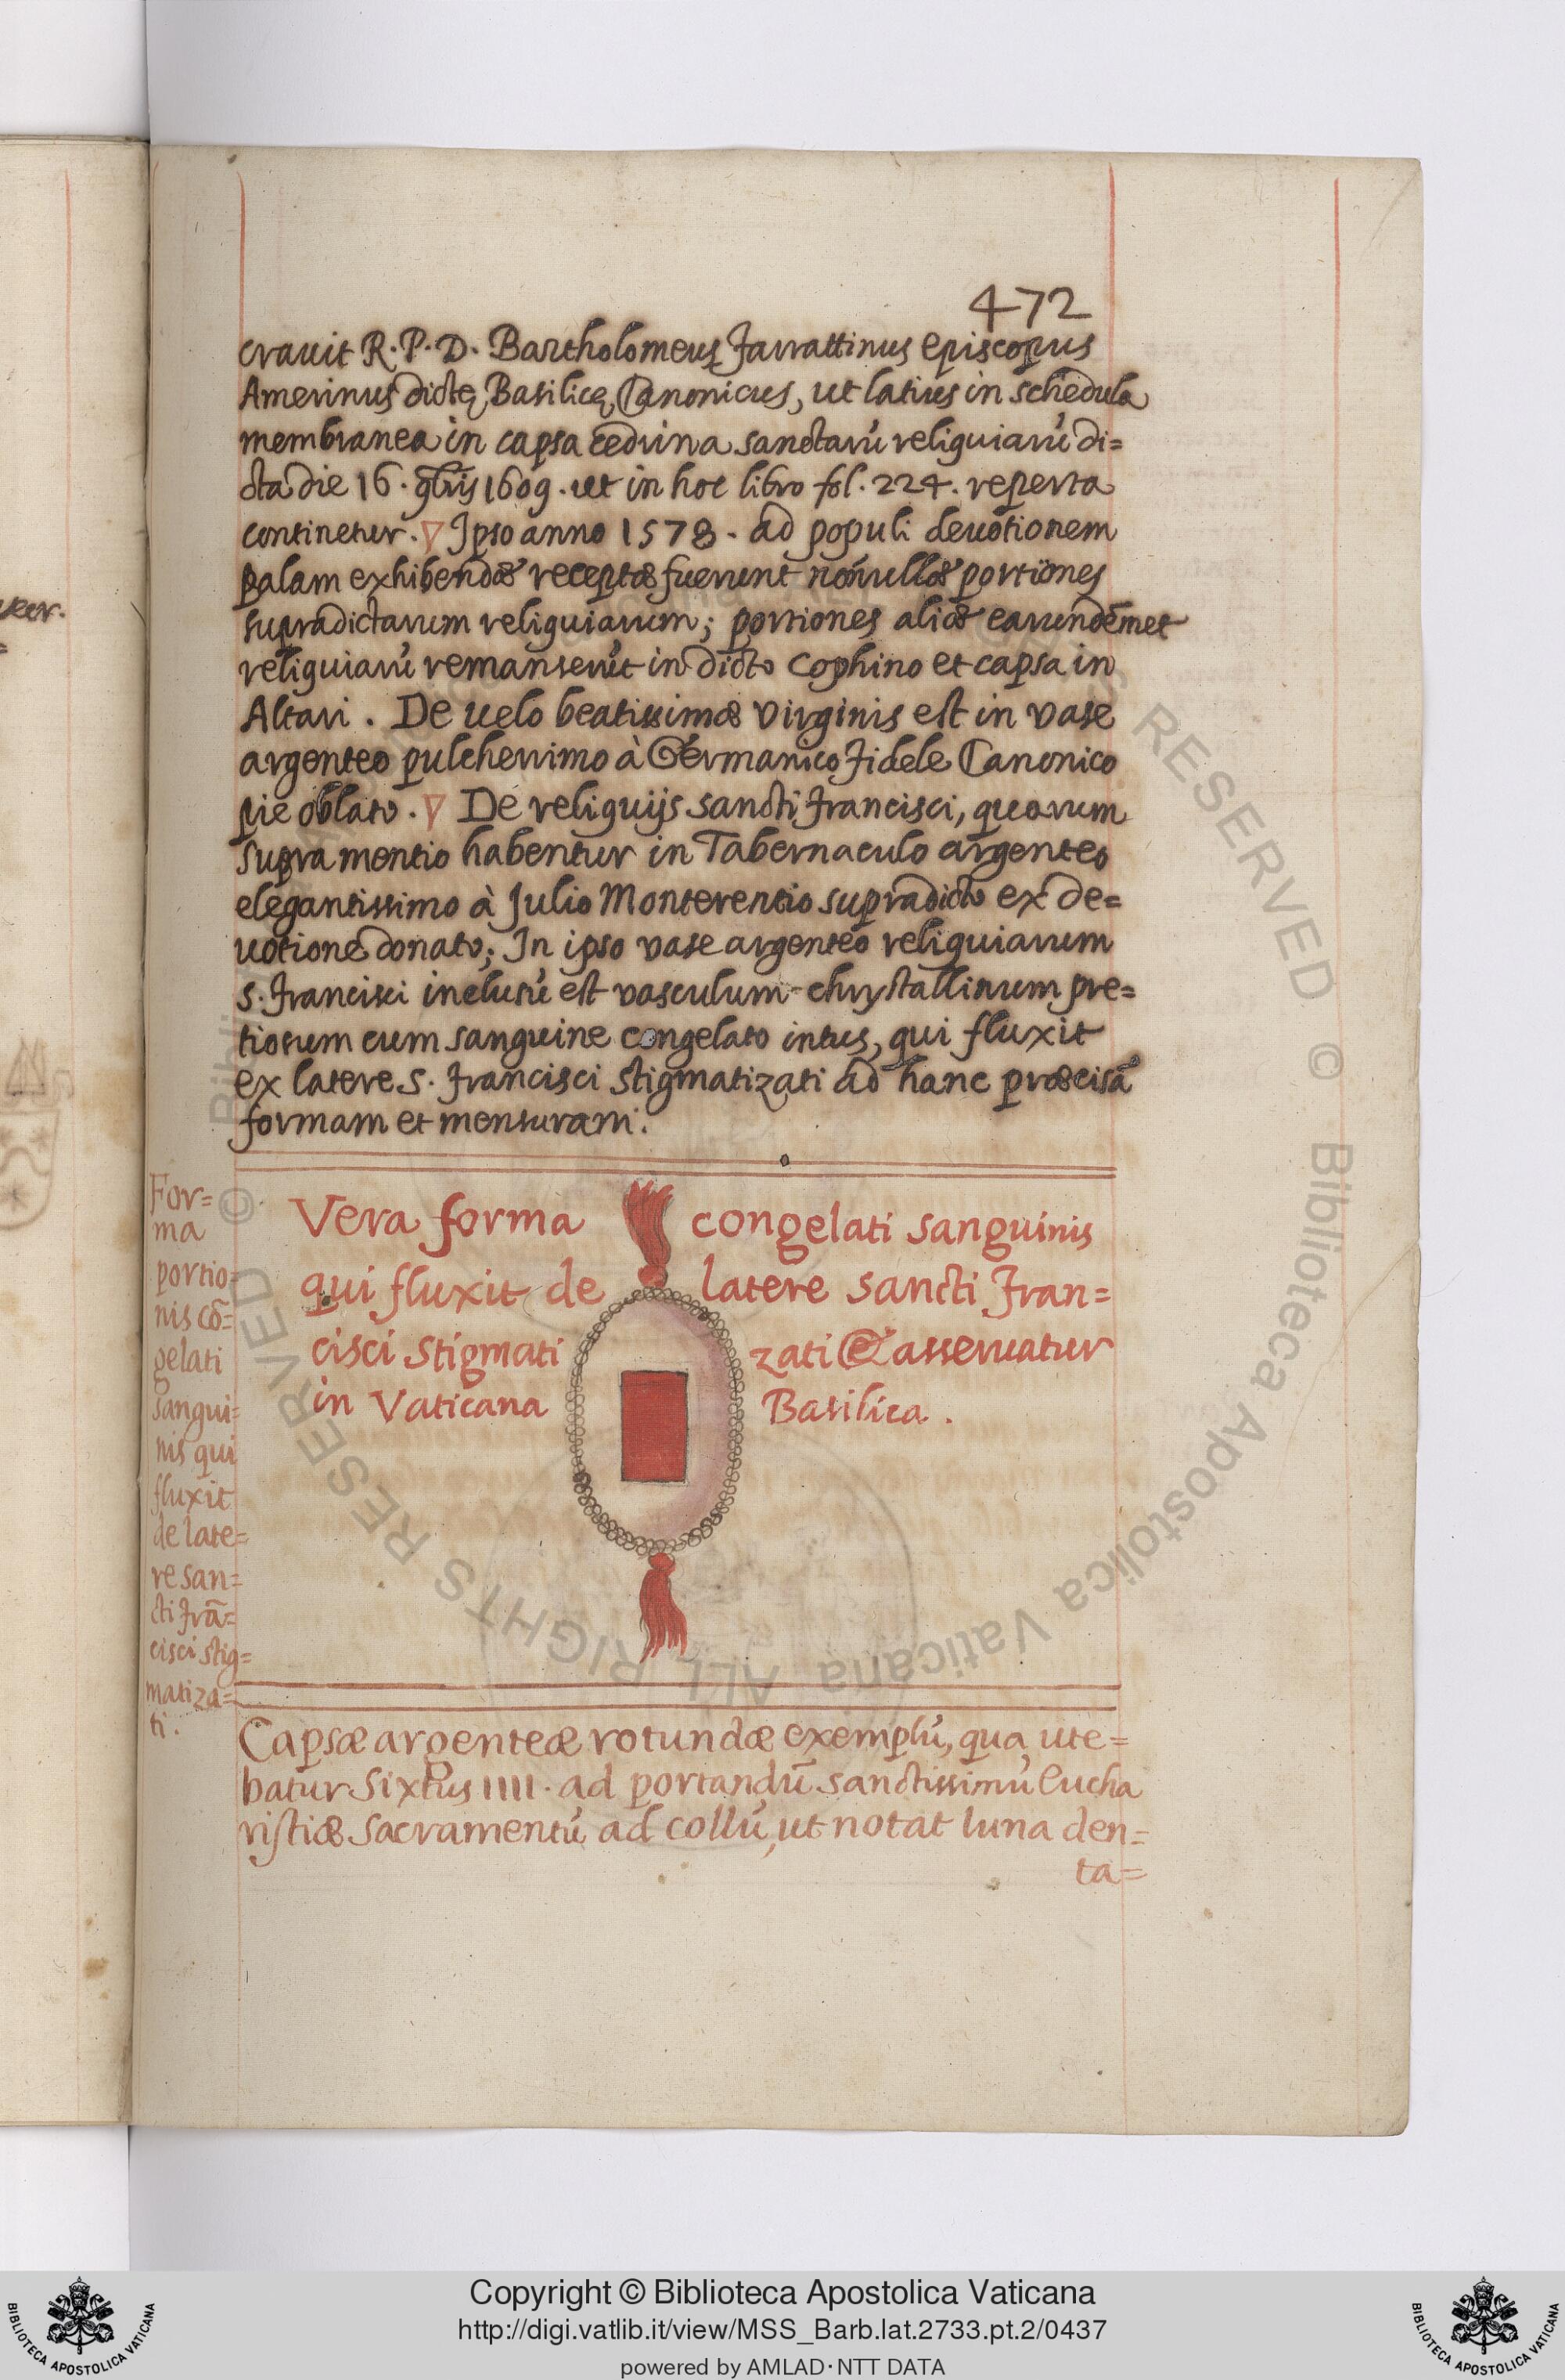 472
crauit R. P. D. Bartholomeus Farrattinus episcopus
Amerinus dictę Basilicę Canonicus, ut latius in schedula
membranea in capsa cedrina sanctarũ reliquiarũ di=
cta die 16. 9bris 1609. ut in hoc libro fol. 224. reperta
continetur. ▽ Ipso anno 1578. ad populi deuotionem
palam exhibendæ receptæ fuerunt nõnullæ portiones
supradictarum reliquiarum; portiones aliæ earundẽmet
reliquiarũ remanserũt in dicto cophino et capsa in
Altari. De uelo beatissimæ virginis est in vase
argenteo pulcherrimo à Germanico Fidele Canonico
pie oblato. ▽ De reliquijs sancti Francisci, quarum
supra mentio habentur in Tabernaculo argenteo
elegantissimo à Julio Monterentio supradicto ex de=
uotione donato; In ipso vase argenteo reliquiarum
S. Francisci inclusũ est vasculum chrystallinum pre=
tiosum cum sanguine congelato intus, qui fluxit
ex latere S. Francisci stigmatizati ad hanc præcisã
formam et mensuram.
For=
ma
portio=
nis cõ=
gelati
sangui=
nis qui
fluxit
de late=
re san=
cti Frã=
cisci stig=
matiza=
ti.
Vera forma congelati sanguinis
qui fluxit de latere sancti Fran=
cisci stigmati zati & asseruatur
in Vaticana Basilica.
Capsæ argenteæ rotundæ exemplũ, qua ute=
batur Sixtus IIII. ad portandũ sanctissimũ Eucha
ristiæ sacramentũ ad collũ, ut notat luna den=
ta=
© Biblioteca Apostolica Vaticana ALL RIGHTS RESERVED
Copyright © Biblioteca Apostolica Vaticana
http://digi.vatlib.it/view/MSS_Barb.lat.2733.pt.2/0437
powered by AMLAD·NTT DATA
BIBLIOTECA APOSTOLICA VATICANA
BIBLIOTECA APOSTOLICA VATICANA